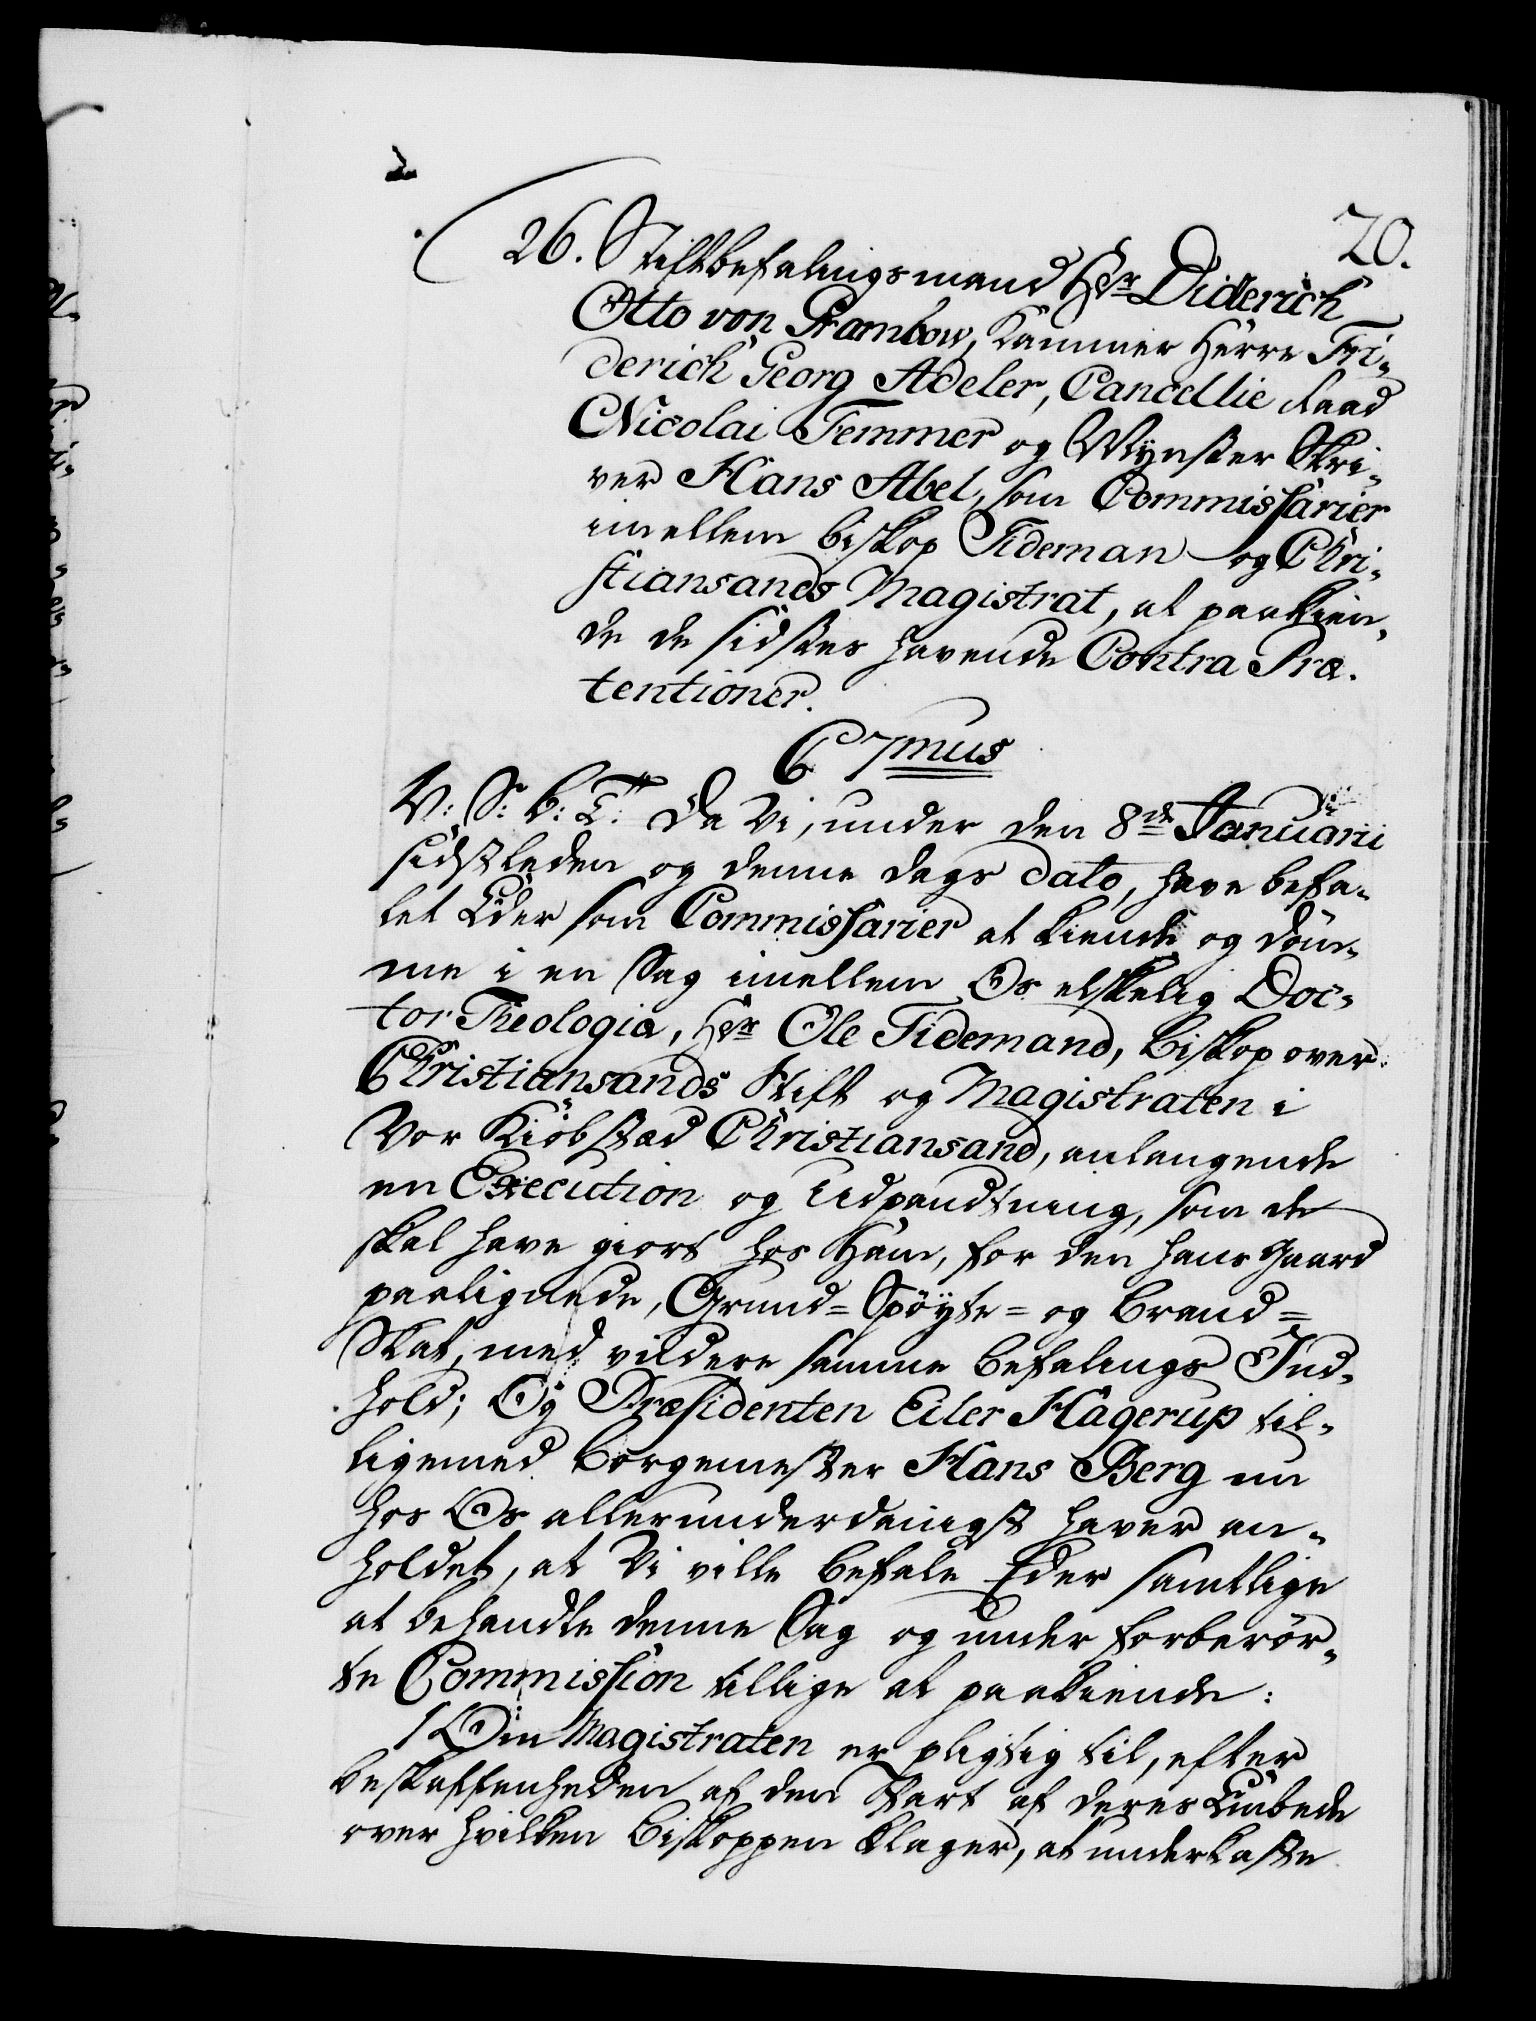 20.
26. Stiftbefalingsmand Hr Diderich
Otto von Grambow, Kammer Herre Fri-
derich Georg Adeler, Cancellie Raad
Nicolai Femmer og Mynster Skri-
ver Hans Abel, som Commissarier
imellem Biskop Tideman og Chri-
stiansands Magistrat, at paakien-
de de sidstes havende Contra Præ-
tentioner.
C 7mus
V: S: B: T: Da Vi, under den 8de Januarii
sidstleden og denne Dags dato, have befa-
let Eder som Commissarier at kiende og döm-
me i en Sag imellem Os elskelig Doc-
tor Theologiæ, Hr Ole Tidemand, Biskop over
Christiansands Stift og Magistraten i
Vor Kiöbstæd Christiansand, anlangende
en Execution og Udpandtning, som de
skal have giort hos Ham, for den hans Gaard
paalignede, Grund= Spöyte= og Brand=
Skat, med videre samme Befalings Ind-
hold; Og Præsidenten Eiler Hagerup til-
ligemed Borgemester Hans Berg nu
hos Os allerunderdanigst haver an-
holdet, at Vi ville befale Eder samtlige
at behandle denne Sag og under forberör-
te Commission tillige at paakiende:
1 Om Magistraten er pligtig til, efter
Beskaffenheden af den Part af deres Embede
over hvilken Biskoppen klager, at underkaste